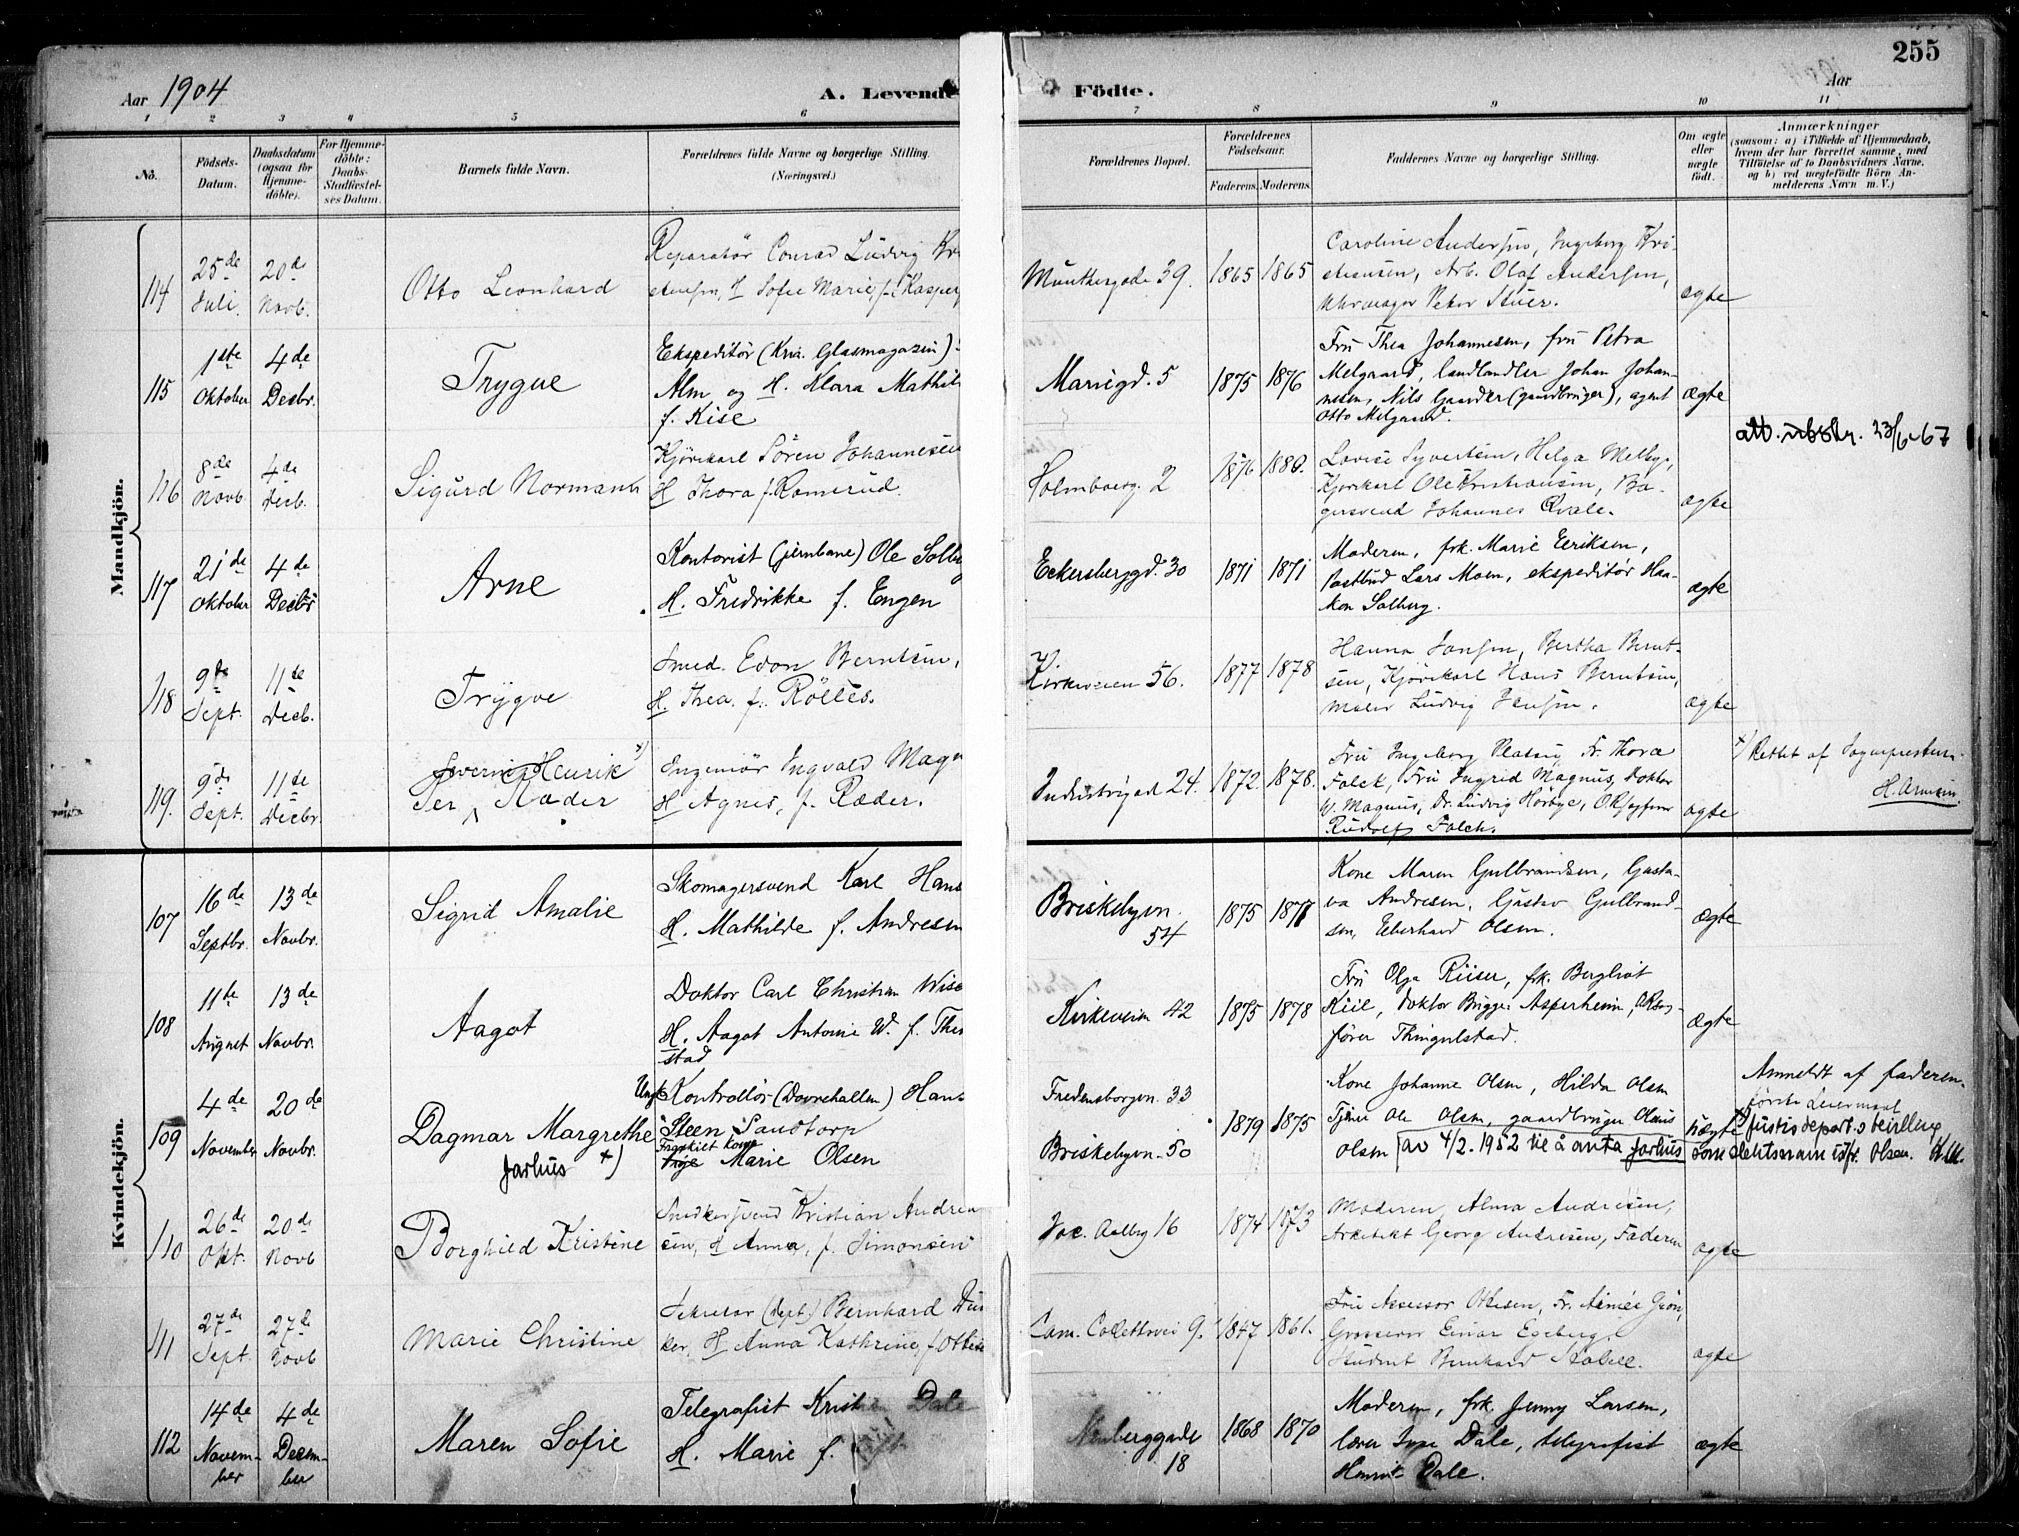 255
Aar 1904
A. Levende Födte.
Aar
1 2 3 4 5 6 7 8 9 10 11
No.
Födsels-Datum.
Daabsdatum (ogsaa for Hjemmedöbte).
For Hjemmedöbte: Daabs-Stadfæstelses Datum.
Barnets fulde Navn.
Forældrenes fulde Navne og borgerlige Stilling.
(Næringsvei.)
Forældrenes Bopæl.
Forældrenes Födselsaar.
Faderens. Moderens.
Faddernes Navne og borgerlige Stilling.
Om ægte eller uægte födt.
Anmærkninger
(saasom: a) i Tilfælde af Hjemmedaab,
hvem der har forrettet samme, med
Tilföielse af to Daabsvidners Navne,
og b) ved uægtefödte Börn Anmelderens Navn m. V.)
Mandkjön.
114
25de Juli.
20de Novb.
Otto Leonhard
Reparatör Conrad Ludvig Kri
stensen, H Sofie Marie, f. Kasper
Munthesgade 39.
1865 1865
Caroline Andersen, Ingeborg Kri-
stiansen, Arb. Olaf Andersen,
Uhrmager Peter Stuer.
ægte
115
1ste Oktober
4de Decbr.
Trygve
Ekspeditör (Kria. Glasmagazin)
Alm og H. Klara Mathil
f. Kise
Mariegd. 5
1875 1876
Fru Thea Johannesen, fru Petra
Melgaard, landhandler Johan Johan-
nesen, Nils Gaarder (gaardbruger), agent
Otto Melgaard.
ægte
att. utstr. 23/6-67
116
8de Novb
4de Decb.
Sigurd Normann
Kjörekarl Sören Johannesen
H Thora f. Ramerud.
Holmboesg. 2
1876 1880.
Lovise Syvertsen, Helga Melby,
Kjörekarl Ole Kristiansen, Ba-
gersvend Johannes Qvale.
ægte
117
21de Oktober
4de Decbr
Arne
Kontorist (jernbane) Ole Solbe
H. Fredrikke f. Engen
Eckersbergd. 30
1871 1871
Moderen, frk. Marie Eeriksen,
Postbud Lars Moen, ekspeditör Haa-
kon Solberg.
ægte
118
9de Sept.
11te Decb.
Trygve
Smed. Edon Berntsen,
H. Thea f. Röttes.
Kirkeveien 56.
1877 1878
Hanna Jansen, Bertha Bernt-
sen, Kjörekarl Hans Berntsen,
Maler Ludvig Jensen.
ægte
119.
9de Sept.
11te Decbr
Severin Henrik x)
Per Ræder
Ingeniör Ingvald Magn
H Agnes, f. Ræder.
Industrigad 24.
1872. 1878.
Fru Ingeborg Fr. Thora
Falck, Fru Ingrid Magnus, Doktor
W. Magnus, Dr. Ludvig Hörbye,
Rudolf Falck.
ægte
x) Rettet af Sogneprestun
Kvindekjön.
107
16de Septbr.
13de Novbr.
Sigrid Amalie
Skomagersvend Karl Hans
H. Mathilde f. Andresen
Briskebyvn. 54
1875 1877
Kone Maren Gulbrandsen, Gusta-
va Andresen, Gustav Gulbrand-
sen, Eberhard Olsen.
ægte
108
11te August
13de Novbr.
Aagot
Doktor Carl Christian Wise
H. Aagot Antonie W. f. Thin
stad
Kirkeveien 42
1875 1878
Fru Olga Riiser, frk. Bergliot
Kiil, Doktor Brigge Asperheim, ORsag-
förer Thingulstad.
ægte
109
4de November
20de Novbr.
Dagmar Margrethe
Jarhus +)
Ungk. Kontrollör (Dovrehallen) Hans
Steen Sandtorp
Fraskilt Kone
Marie Olsen
Fredensborgvn. 33
Briskebyvn. 50
1879 1875
Kone Johanne Olsen, Hilda Olsen
Tjener Ole Olsen, gaardbruger Olaus
Olsen
uægte
Anmeldt af faderen.
förste Leiermaal
+) Justisdepart.s bevilling
av 4/2. 1952 til å anta Jarhus som slektsnavn istf. Olsen.
110
26de Okt.
20de Novb
Borghild Kristine
Snedkersvend Kristian Andrea
sen, H Anna, f. Simonsen
Jac. Aalbg 16
1874 1873
Moderen, Alma Andresen,
Arkitekt Georg Andresen, Faderen
ægte
111
27de Sept.
27de Novb
Marie Christine
Sekretær (dept.) Bernhard Dun
ker, H Anna Kathrine, f. Ottese
Cam. Collettsvei 9.
1847 1861.
Fru Assessor Ottesen, Fr. Aimée Grön,
Grosserer Einar Egeberg,
Student Bernhard Stabell.
ægte
112
14de November
4de December
Maren Sofie
Telegrafist Kristen Dale
H. Marie f.
Neuberggade 18
1868 1870
Moderen, frk. Jenny Larsen,
lærer Dale, telegrafist
Henrik Dale.
ægte